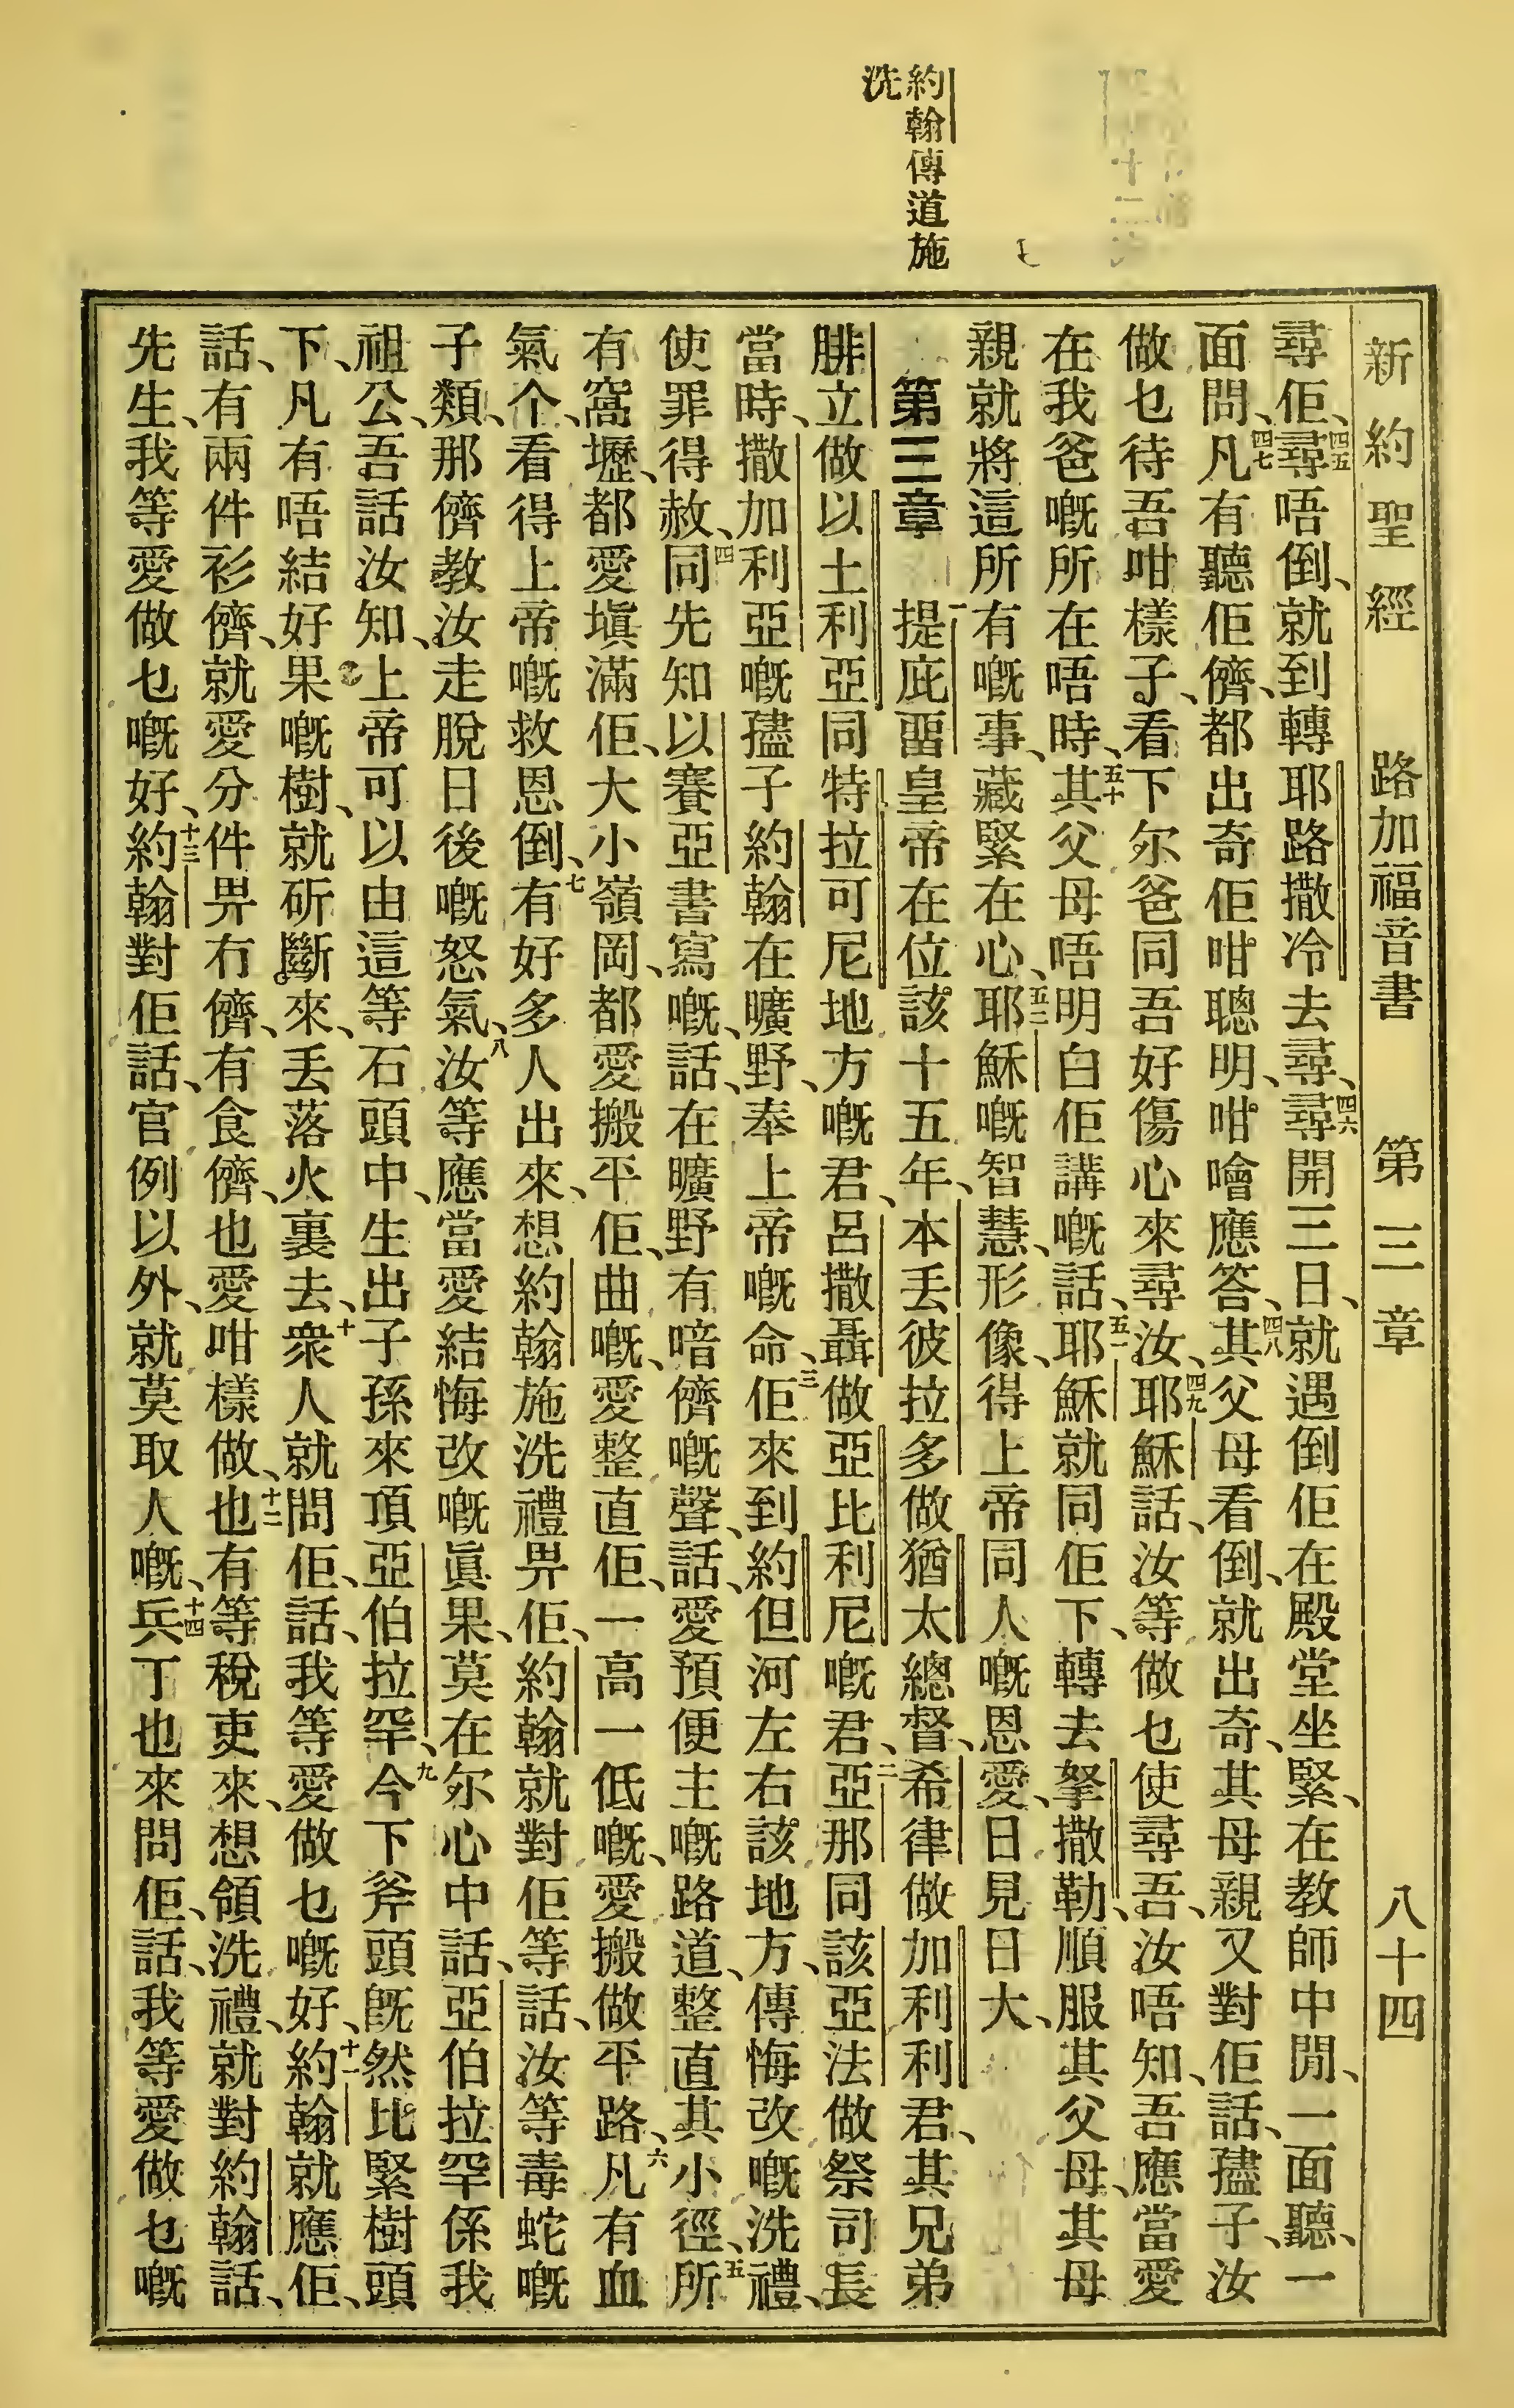 新約聖經 路加福音書 第三章 八十四
尋佢、四五尋唔倒、就到轉耶路撒冷去尋、四六尋開三日、就遇倒佢在殿堂坐緊、在教師中閒、一面聽、一
面問、四七凡有聽佢儕、都出奇佢咁聰明、咁噲應答、四八其父母看倒、就出奇、其母親又對佢話、孻子、汝
做乜待吾咁樣子、看下尔爸同吾好傷心來尋汝、四九耶穌話、汝等做乜使尋吾、汝唔知、吾應當愛
在我爸嘅所在唔時、五十其父母唔明白佢講嘅話、五一耶穌就同佢下、轉去拏撒勒、順服其父母、其母
親就將這所有嘅事、藏緊在心、五二耶穌嘅智慧、形像、得上帝同人嘅恩愛、日見日大、
約翰傳道施
洗
第三章 一提庇畱皇帝在位該十五年、本丟彼拉多做猶太總督、希律做加利利君、其兄弟
腓立做以土利亞同特拉可尼地方嘅君、呂撒聶做亞比利尼嘅君、二亞那同該亞法做祭司長
當時、撒加利亞嘅孻子約翰在曠野、奉上帝嘅命、三佢來到約但河左右該地方、傳悔改嘅洗禮、
使罪得赦、四同先知以賽亞書寫嘅、話、在曠野有喑儕嘅聲、話、愛預便主嘅路道、整直其小徑、五所
有窩壢、都愛塡滿佢、大小嶺岡、都愛搬平佢、曲嘅、愛整直佢、一高一低嘅、愛搬做平路、六凡有血
氣个、看得上帝嘅救恩倒、七有好多人出來、想約翰施洗禮畀佢、約翰就對佢等話、汝等毒蛇嘅
子類、那儕教汝走脫日後嘅怒氣、八汝等應當愛結悔改嘅眞果、莫在尔心中話、亞伯拉罕係我
祖公、吾話汝知、上帝可以由這等石頭中、生出子孫來頂亞伯拉罕、九今下斧頭旣然比緊樹頭
下、凡有唔結好果嘅樹、就斫斷來、丟落火裏去、十衆人就問佢、話、我等愛做乜嘅好、十一約翰就應佢、
話、有兩件衫儕、就愛分件畀冇儕、有食儕、也愛咁樣做、十二也有等稅吏來、想領洗禮、就對約翰話、
先生、我等愛做乜嘅好、十三約翰對佢話、官例以外、就莫取人嘅、十四兵丁也來問佢、話、我等愛做乜嘅